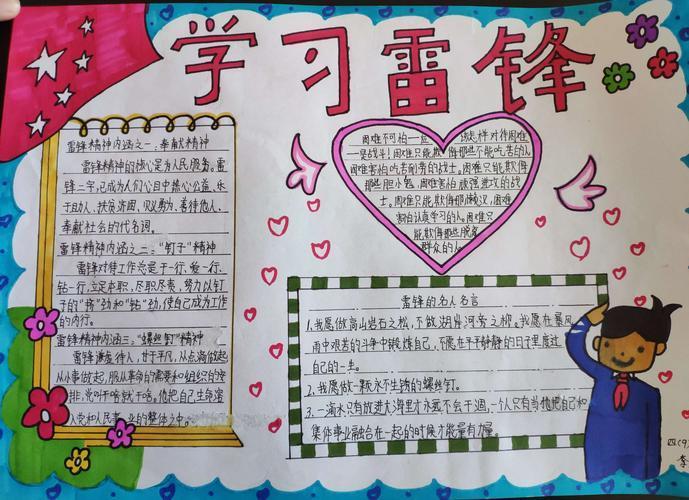 学习雷锋
雷锋精神内涵之一，奉献精神
雷锋精神的核心是为人民服务。雷
锋二字，已成为人们心目中热心公益、乐
于助人、扶贫济困、见义勇为、善待他人、
奉献社会的代名词。
雷锋精神内涵之二："钉子"精神
雷锋对待工作总是干一行、爱一行、
钻一行，立足本职、尽职尽责、努力以钉
子的"挤"劲和"钻"劲，使自己成为工作
的内行。
雷锋精神内涵三："螺丝钉"精神
雷锋谦虚待人，甘于平凡，从点滴做起
从小事做起，服从革命的需要和组织的安
排，党叫干啥就干啥，他把自己生命溶
入党和人民事业的整体之中。
困难不可怕一些 该怎样对待困难
一是战斗！困难只能欺侮那些不能吃苦的人
困难害怕吃苦耐劳的战士。困难只能欺侮
那些胆小鬼，困难害怕 顽强进攻的战
士。困难只能欺侮那懒汉、困难
害怕认真学习的人。困难只
能欺侮那些脱离
群众的人
雷锋的名人名言
1.我愿做高山岩石之松，不做湖岸河旁之柳。我愿在暴风
雨中艰苦的斗争中锻炼自己，不愿在平平静静的日子里度过
自己的一生。
2.我愿做一颗永不生锈的螺丝钉。
3.一滴水只有放进大海里才永远不会干涸，一个人只有当他把自己和
集体事业融合在一起的时候才能最有力量。
四(9
李